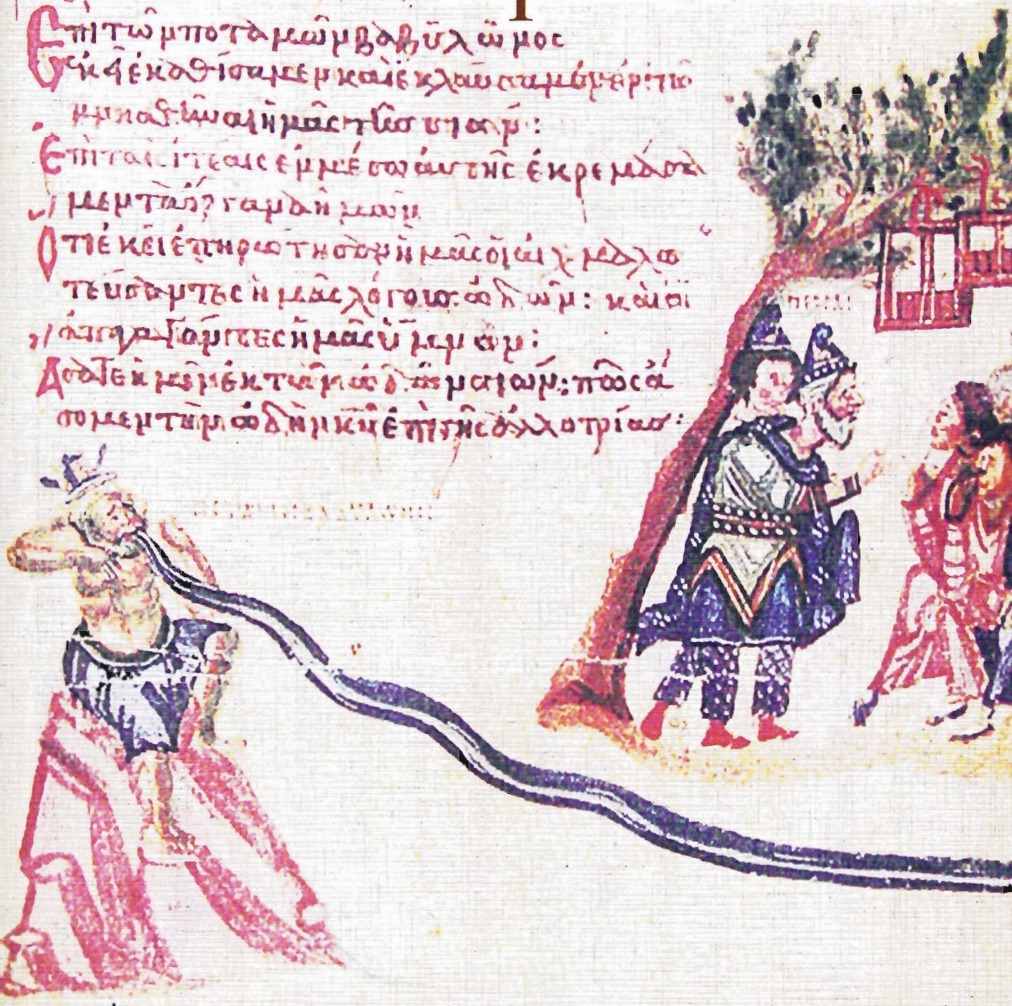 Ἐπὶ τῶν ποταμῶν βαβυλῶνος
ἐκεῖ ἐκαθίσαμεν καὶ ἐκλαύσαμεν ἐν τῶ
μνησθῆναι ἡμᾶς τῆς σιών:
Ἐπὶ ταῖς ἰτέαις ἐν μέσω αὐτῆς ἐκρεμάσα
μεν τὰ ὄργανα ἡμῶν
Ὅτι ἐκεῖ ἐπηρώτησαν ἡμᾶς οἱ αἰχμαλω
τεύσαντες ἡμᾶς λόγους ὠδῶν: καὶ οἱ
ἀπαγαγόντες ἡμᾶς ὕμνον:
Ἄσατε ἡμῖν ἐκ τῶν ὠδῶν σιών: πῶς ἄ
σομεν τὴν ὠδὴν κυ ἐπὶ γῆς ἀλλοτρίας: